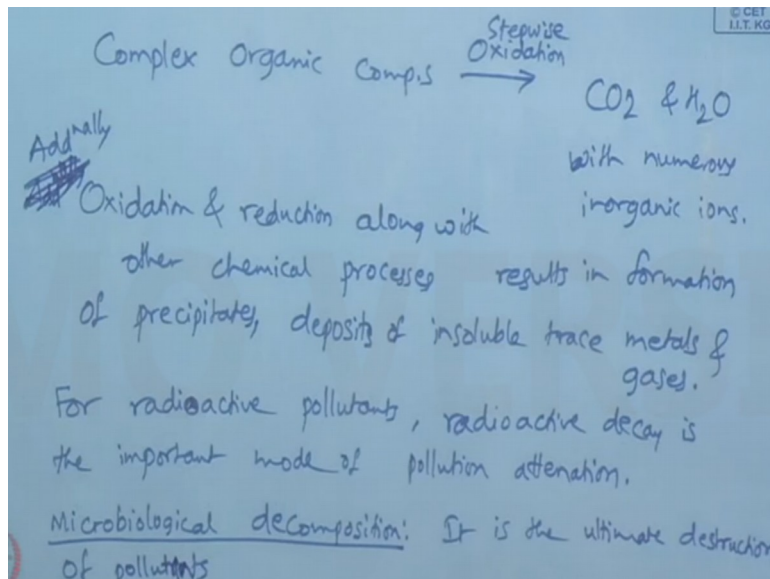 © CET
I.I.T. KG
Complex Organic Comp.s Stepwise Oxidation →
CO2 & H2O
with numerous
inorganic ions.
Addnally
Oxidation & reduction along with
other chemical processes results in formation
of precipitates, deposits of insoluble trace metals &
gases.
For radioactive pollutants, radioactive decay is
the important mode of pollution attenation.
Microbiological decomposition: It is the ultimate destruction
of pollutants